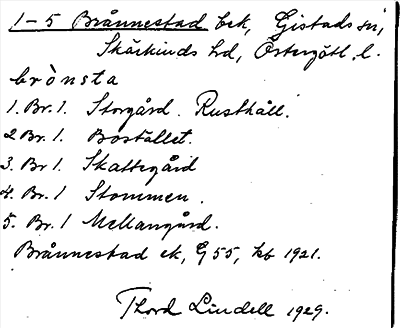 1-5 Brånnestad bck, Gistads sn,
Skärkinds hd, Östergötl. l.
brònsta
1. Br. 1. Storgård. Rusthåll.
2 Br. 1. Bostället.
3. Br 1. Skattegård
4. Br. 1 Stommen.
5. Br. 1 Mellangård.
Brånnestad ek, G55, kb 1921.
Thord Lindell 1929.